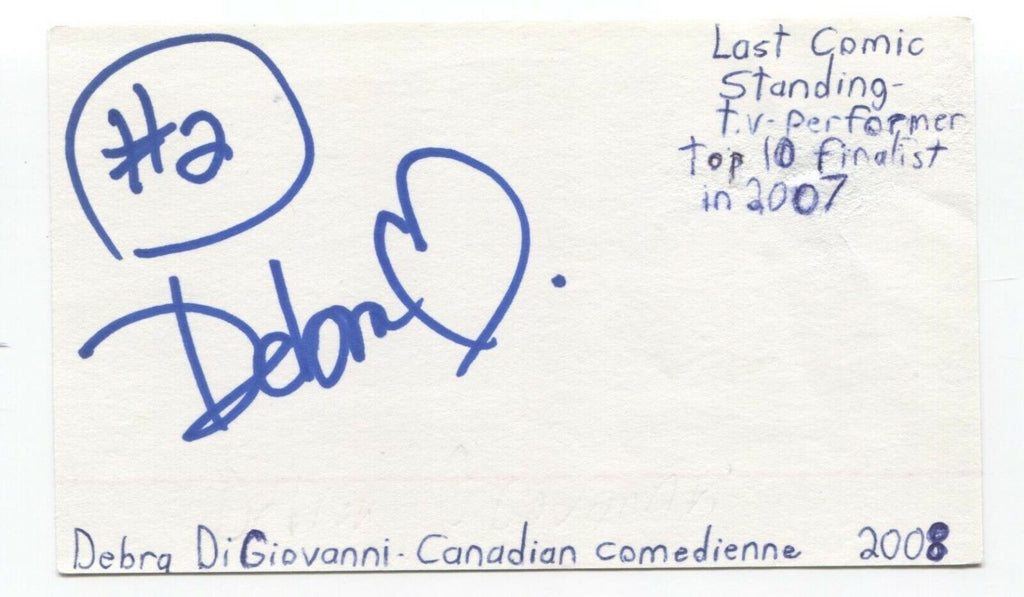 #2
Last Comic
Standing-
T.V-performer
Top 10 finalist
in 2007
Debra
Debra DiGiovanni - Canadian comedienne 2008